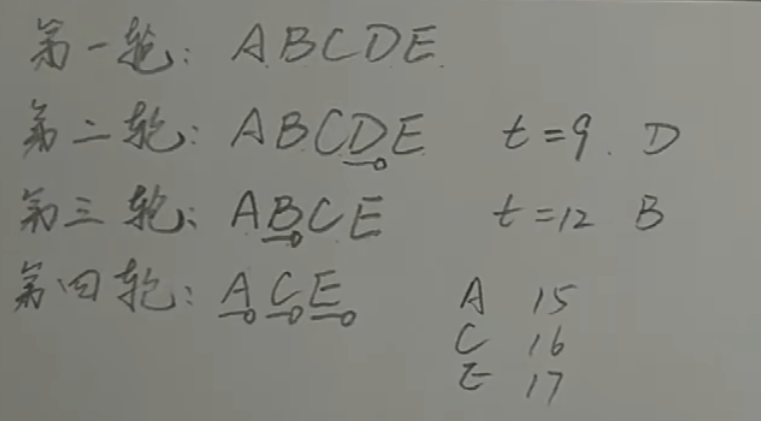 第一轮: ABCDE
第二轮: ABCDE t=9. D
第三轮: ABCE t=12 B
第四轮: ACE
A 15
C 16
E 17